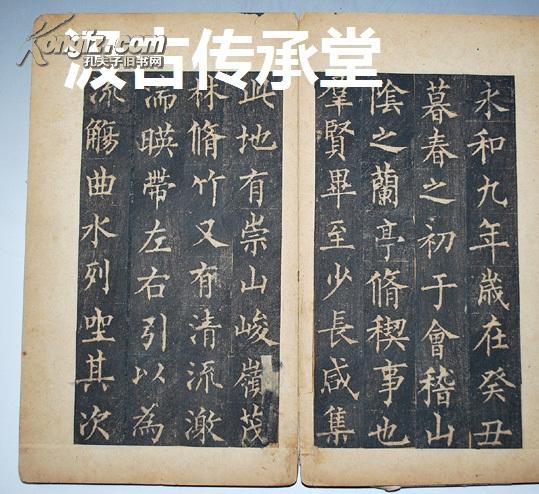 Kongfz.com
孔夫子旧书网
汲古传承堂
永和九年歲在癸丑
暮春之初于會稽山
陰之蘭亭脩稧事也
羣賢畢至少長咸集
此地有崇山峻嶺茂
林脩竹又有清流激
湍暎帶左右引以為
流觴曲水列坐其次